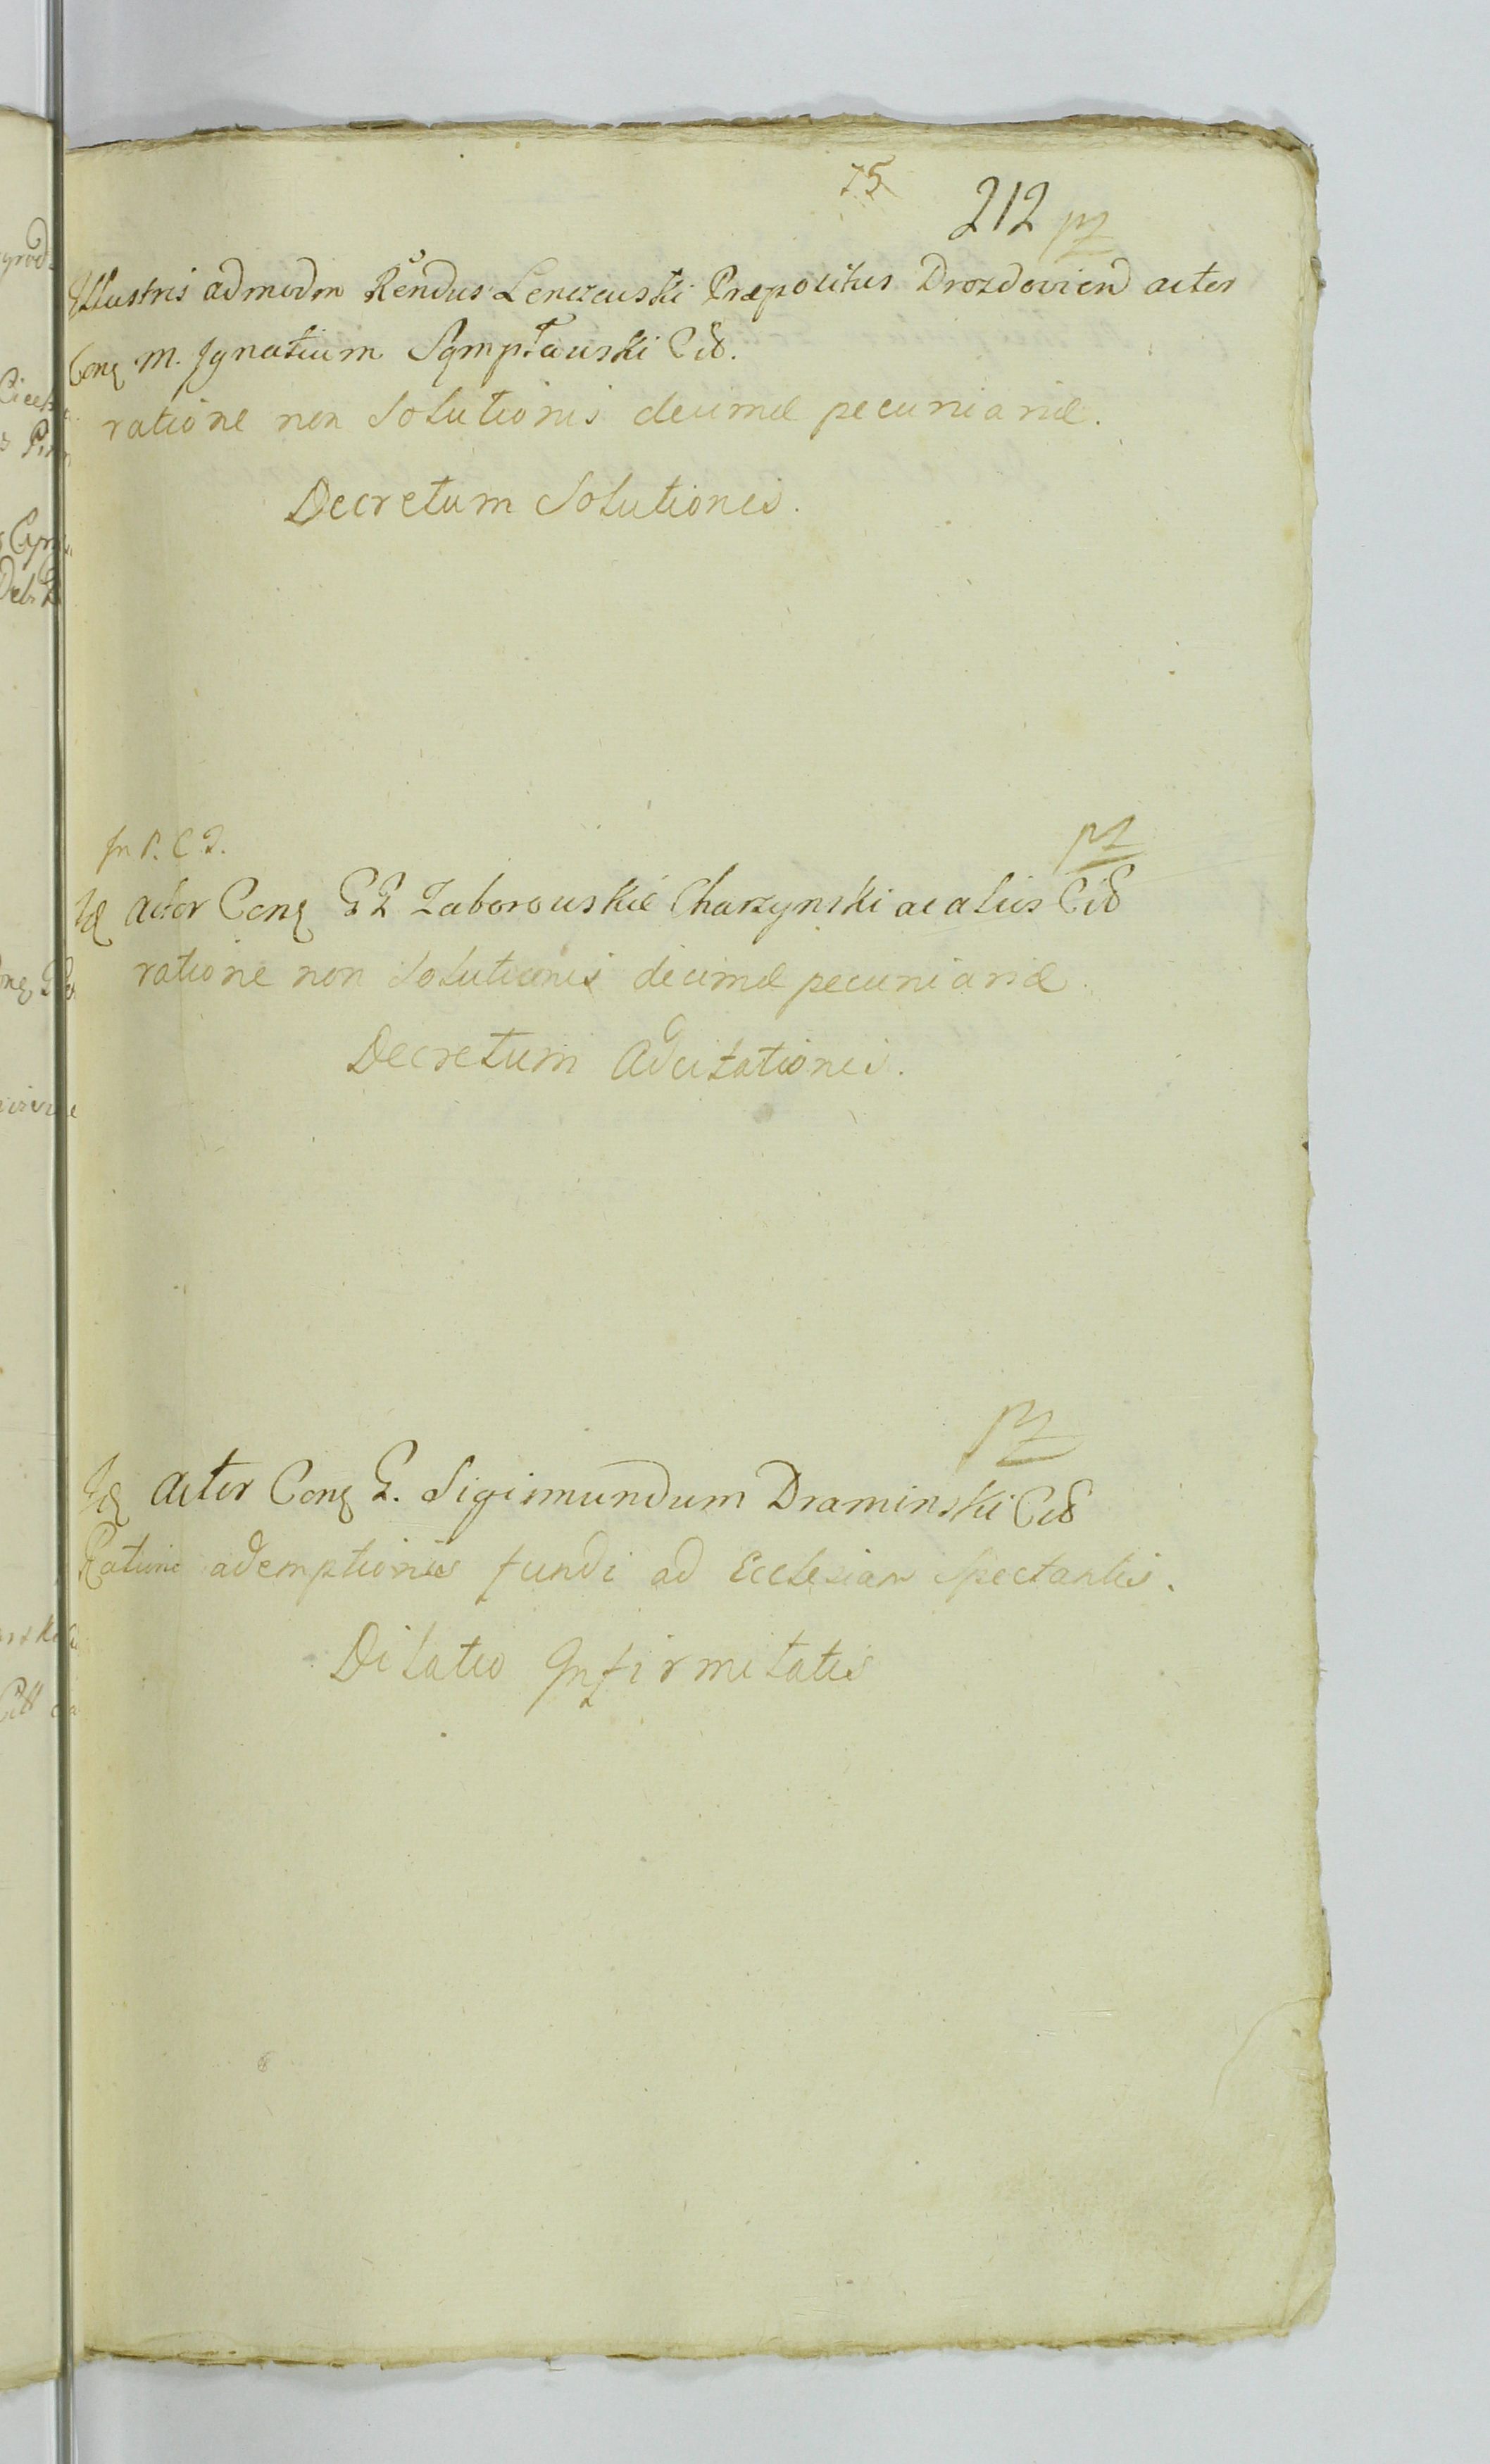 75
212 pz
Illustris admodm Rendus Lenczewski Præpositus Drozdovien actor
Conq M. Ignatium Sympławski Cit.
ratione non solutionis decimæ pecuniariæ.
Decretum Solutionis.
pz
In P. C. I.
Id actor Conq GG Zaborowskie Charzynski ac alios Cit
ratione non solutionis decimæ pecuniariæ.
Decretum Adcitationis.
pz
Id actor Conq G. Sigismundum Draminski Cit
Ratione ademptionis fundi ad Ecclesiam Spectantis.
Dilatio Infirmitatis